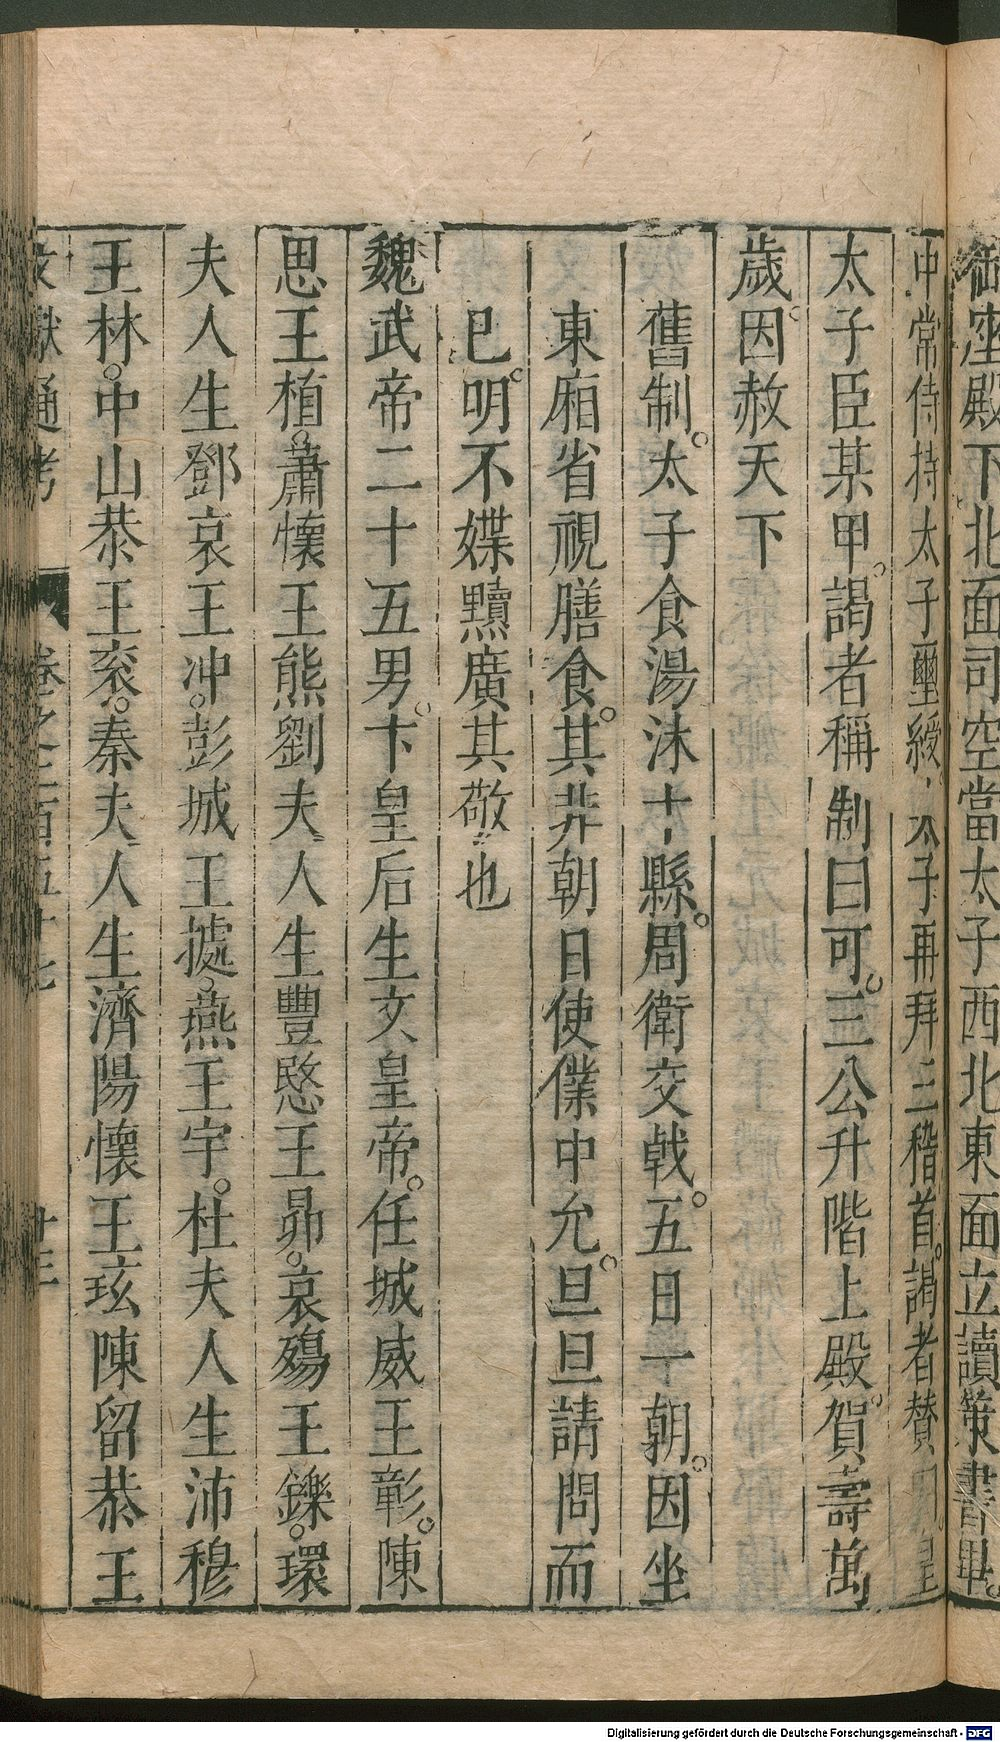 御座殿下北面司空當太子西北東面立讀策書畢
中常侍持太子璽綬太子再拜三稽首謁者贊皇
太子臣某甲謁者稱制曰可三公升階上殿賀壽萬
歲因赦天下
舊制太子食湯沐十縣周衛交戟五日一朝因坐
東廂省視膳食其非朝日使僕中允旦旦請問而
已明不媟黷廣其敬也
魏武帝二十五男卞皇后生文皇帝任城威王彰陳
思王植蕭懷王熊劉夫人生豐愍王昴哀殤王鑠環
夫人生鄧哀王冲彭城王據燕王宇杜夫人生沛穆
王林中山恭王袞秦夫人生濟陽懷王玹陳留恭王
文獻通考 卷之二百五十七 十三
Digitalisierung gefördert durch die Deutsche Forschungsgemeinschaft - DFG